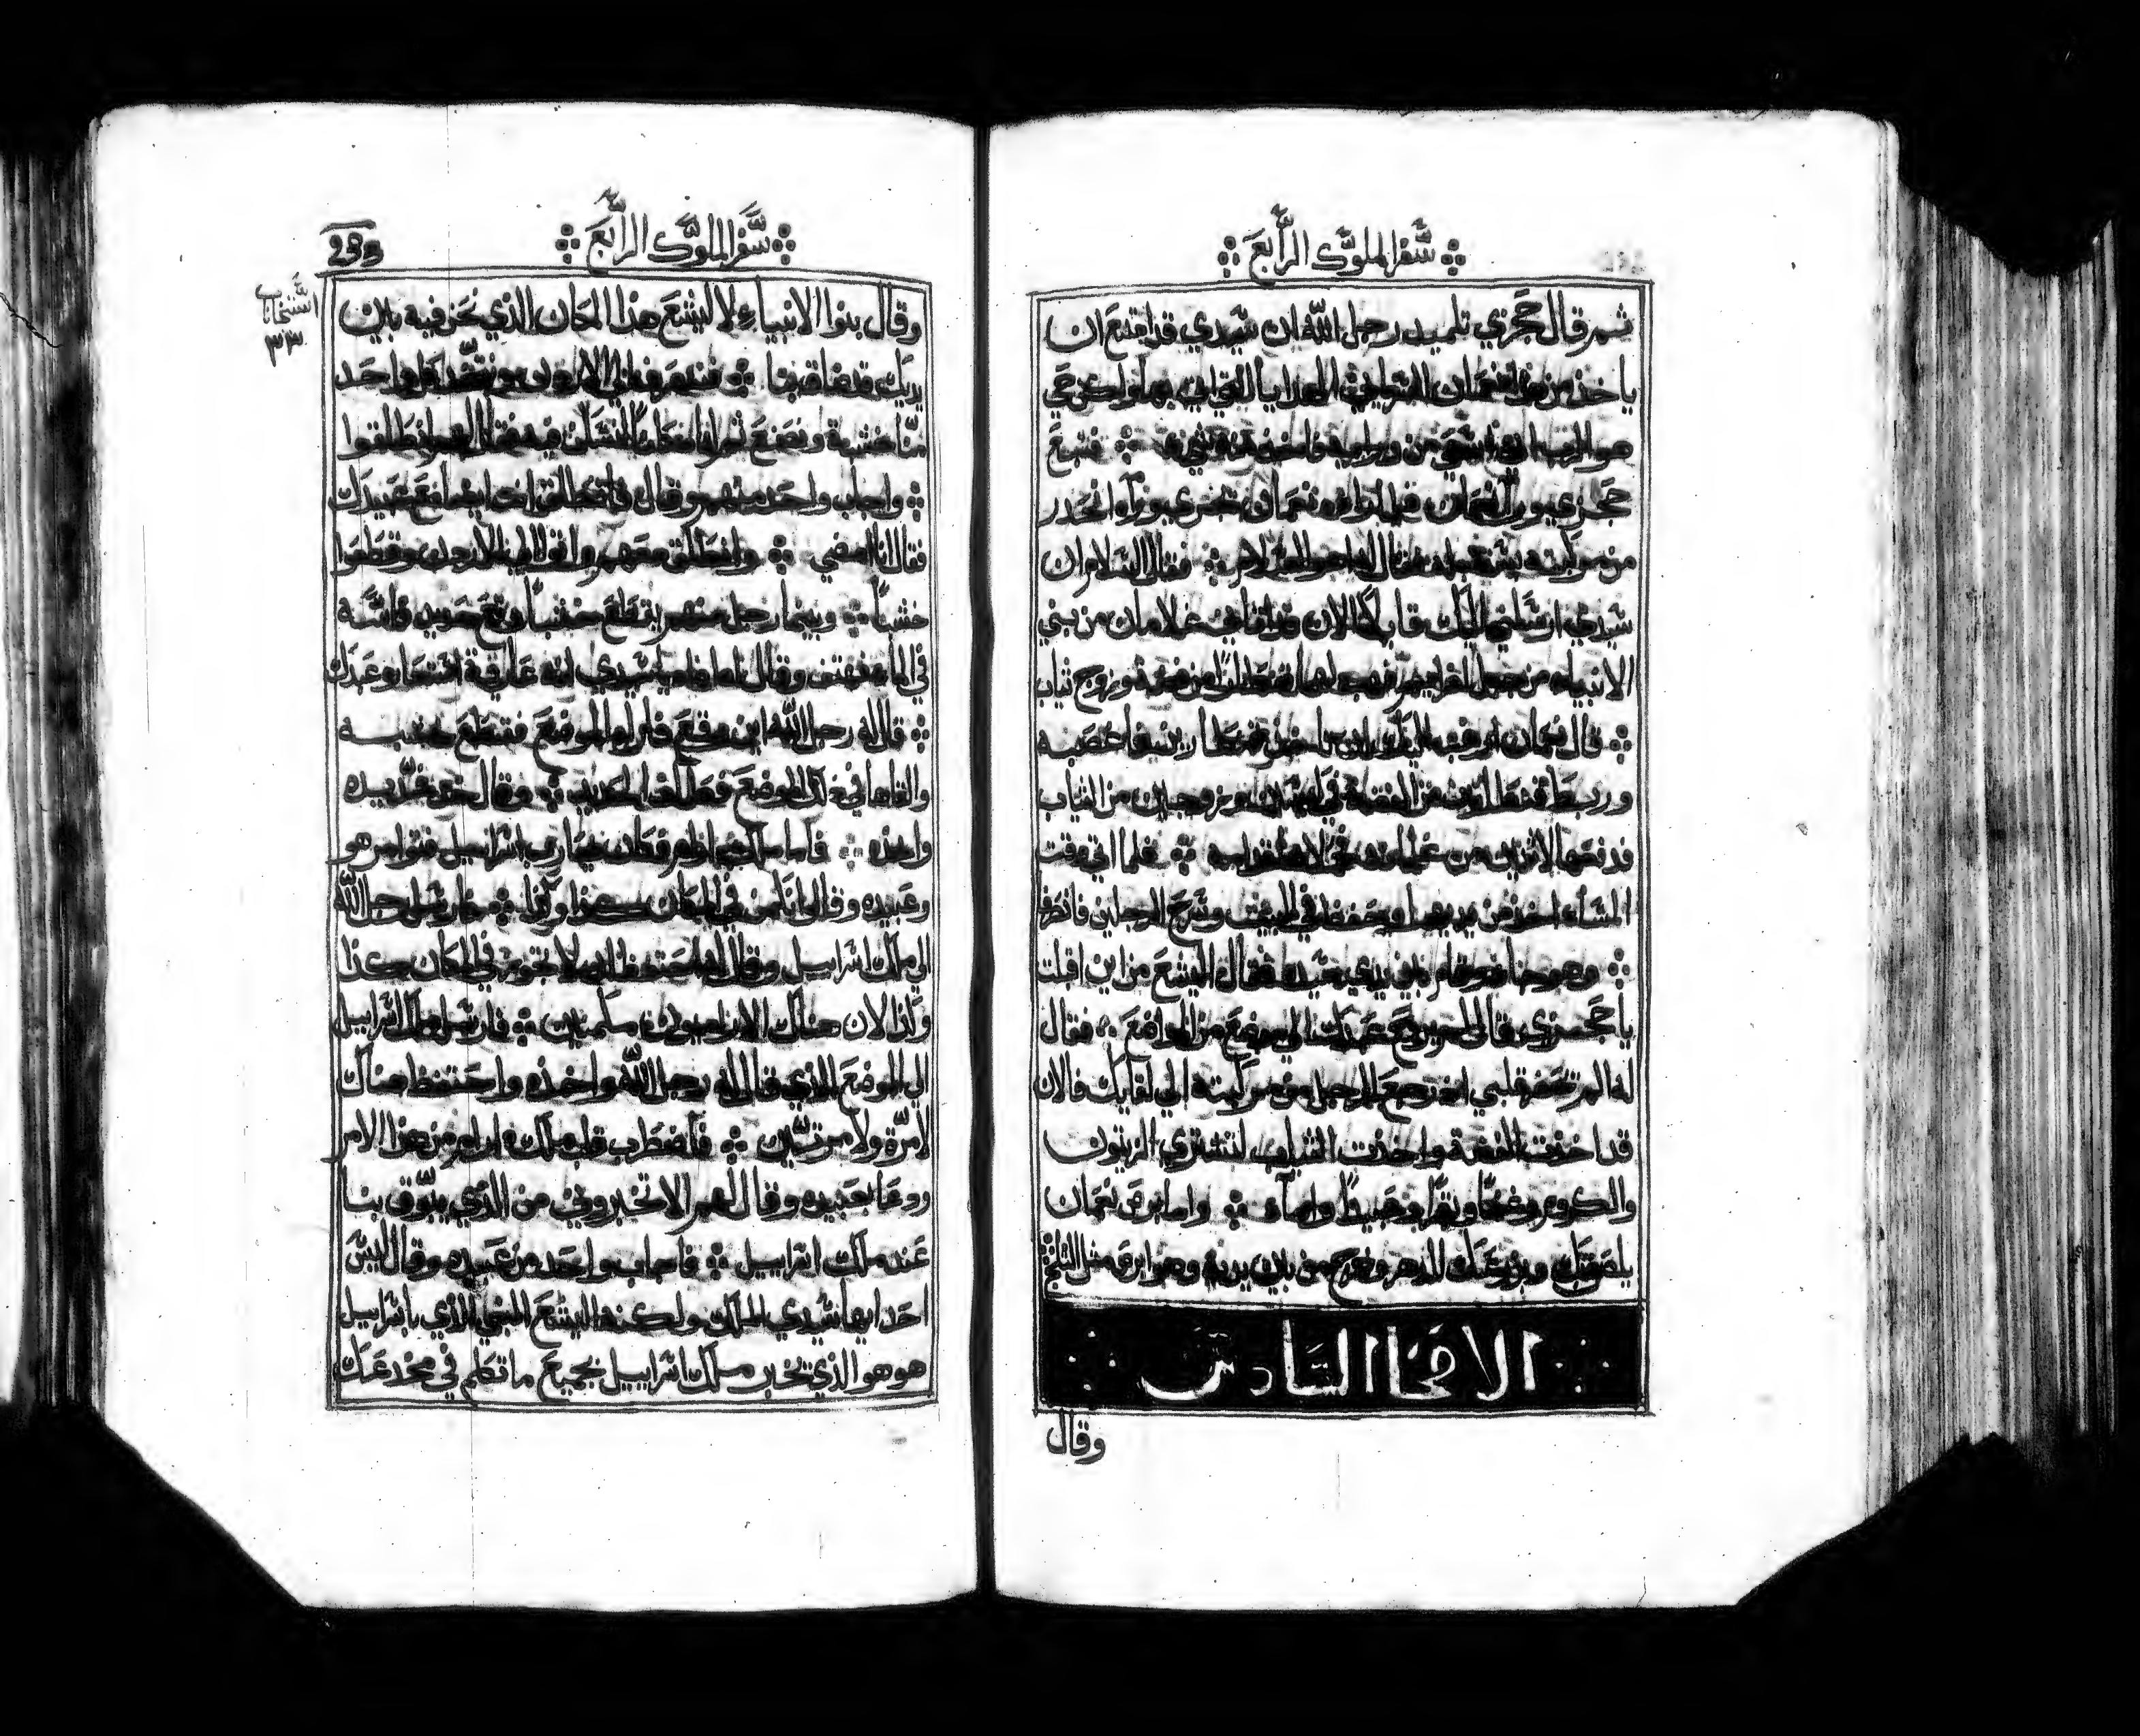 سفر الملوك الرابع
ثم قال حجزي تلميد رجل الله ان سيدي قد امتنع ان
ياخذ من نعمان السرياني الهدايا التي اتي بها ولكن حي
هو الرب اني اسعي من ورايه فاخذ منه شي فتبع
حجزي ورا نعمان فلما راه نعمان يحري وراه انحدر
من مركبته يستقبله فقال له اهو السلام فقال السلام ان
سيدي ارسلني اليك قايلا الان قد اتاني غلامان من بني
الانبياء من جبل افرايم فهب لهما قنطارا من فضة وزوج ثياب
قال نعمان ان ياخذ قنطارين فاغصبه
وربط قنطارين من الفضة في وزوجين من الثياب
فدفعها لاتنين من غلمانه قدامه فلما اتي وقت
المساء اخذ من يديهما وحفظ في البيت وسرح الرجلين فانصرفا
وهو بين يدي سيده فقال اليشع من اين اقبلت
يا حجزي قال لم يمضي عبدك الي موضع من المواضع فقال
له الم تحضر قلبي اذ رجع الرجل من مركبته الي لقايك فالان
قد اخذت الفضة واخذت الثياب لتشتري الزيتون
والكروم وغنما وبقرا وعبيدا واماء واما برص نعمان
يلصق بك وبزرعك للدهر وخرج من بين يديه وهو ابرص مثل الثلج
الاصحاح السادس
وقال
سفر الملوك الرابع
233
استنخاناب
٣٣
وقال بنوا الانبياء لاليشع هذا المكان الذي نحن فيه بين
يديك قد ضاق بنا فنمضي الي الاردن وناخذ كل واحد
منا خشبة ونصنع لنا مكان لنسكن فيه فقال لهم انطلقوا
واجاب واحد منهم وقال فانطلق انت ايضا مع عبيدك
فقال انا امضي وانطلق معهم واتوا الي الاردن وقطعوا
خشبا وبينما رجل منهم يقطع خشبا وقع حديد فاسه
في الماء فهتف وقال اه يا سيدي انه عارية استعاره عبدك
قال له رجل الله اين وقع فاراه الموضع فقطع خشبه
والقاها في ذلك الموضع فطفا الحديد وقال خذ فمد يده
واخذه فاما ملك ارام فكان يحارب اسراييل فتوامر هو
وعبيده وقال انا نكمن في المكان كذا وكذا فارسل رجل الله
الي ملك اسراييل وقال له احتفظ ان لا تجوز في المكان كذا
وكذا لان هناك الارامنيون مكمنين فارسل ملك اسراييل
الي الموضع الذي قال له رجل الله واخذه واحتفظ هناك
لا مرة ولا مرتين فاضطرب قلب ملك ارام من هذا الامر
ودعا بعبيده وقال لهم الا تخبروني من الذي يبوق بنا
عند ملك اسراييل فاجاب واحد من عبيده وقال ليس
احد ايها سيدي الملك ولكنه اليشع النبي الذي باسراييل
هو هو الذي يخبر ملك اسراييل بجميع ما تكلم في مخدعك